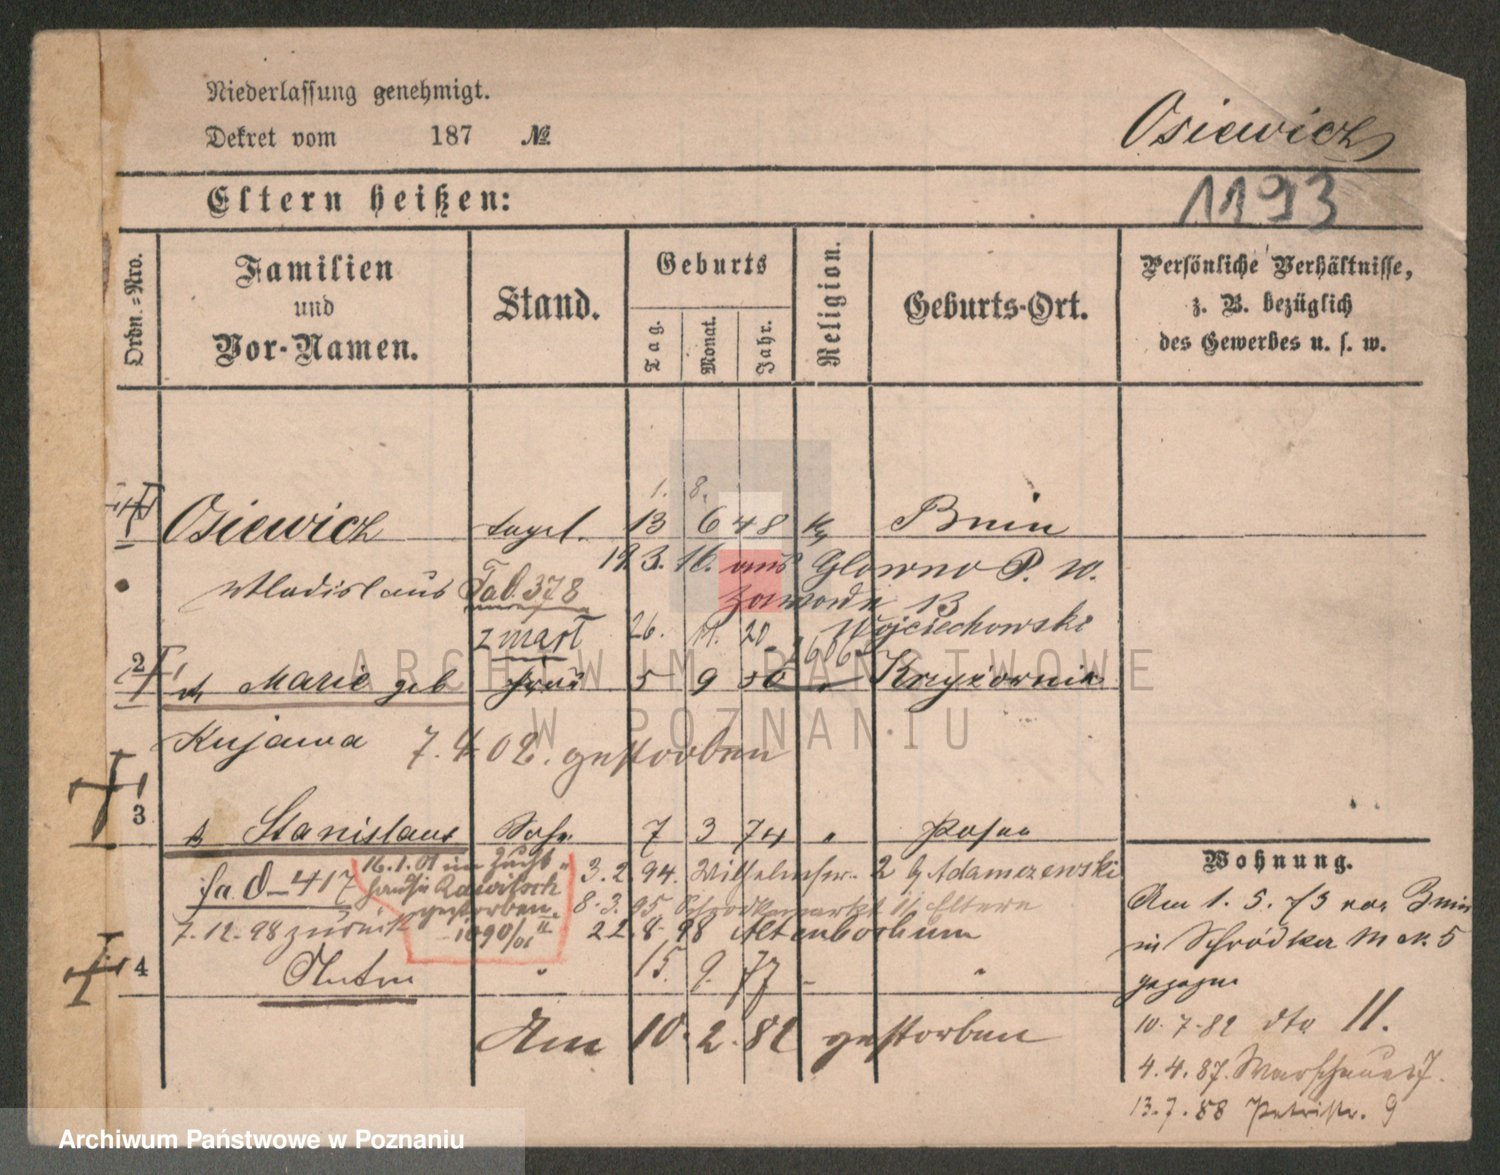 Niederlassung genehmigt.
Dekret vom 187 №
Osiewicz
Eltern heißen:
1193
Ordn.=Nro.
Familien und Vor-Namen.
Stand.
Geburts
Tag. Monat. Jahr.
Religion.
Geburts-Ort.
Persönliche Verhältnisse,
z. B. bezüglich
des Gewerbes u. s. w.
1. 8.
1 Osiewicz Tagel. 13 6 48 K Bnin
19.3.16. aus Glowno P. W.
Wladislaus Fab. 378
13
zmarł 26. 11. 20. Wojciechowski
2 Marie geb Frau 5 9 50 "
Kujawa 7. 4. 02. gestorben
3 Stanislaus Sohn 7 3 74 " Posen
16.1.01 im Zucht-
hause Rawitsch
gestorben
1090/01
3. 2. 94. Wilhelmstr. 2 b Adamczewski
fad-417
8. 3. 95. Eltern
7.12.98 zurück 22. 8. 98 Altenbochum
4 Anton " 15. 9. 77 - "
Am 10. 2. 82 gestorben
Wohnung.
Am 1. 5. 73 von Bnin
in Schrodka M. N. 5
gezogen
10. 7. 82 dto 11.
4. 4. 87. Warschauerst.
13. 7. 88 Petristr. 9
ARCHIWUM PAŃSTWOWE
W POZNANIU
Archiwum Państwowe w Poznaniu